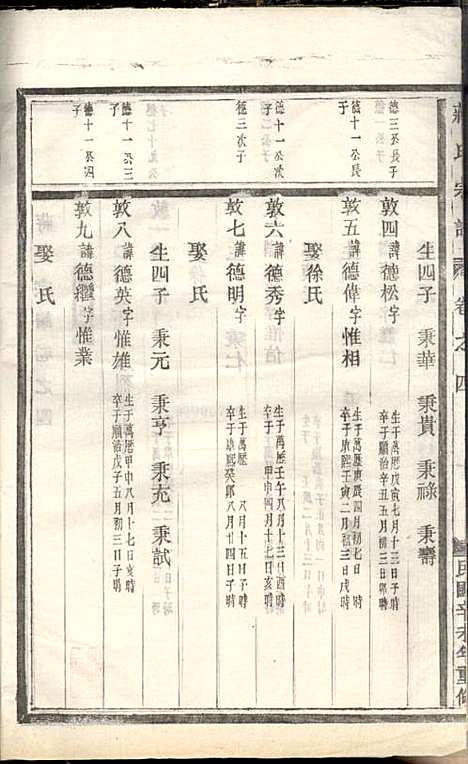 蔣氏宗譜 卷之四 民國辛未年重修
生四子 秉華 秉貴 秉祿 秉壽
德三公長子
敦四諱德松字惟
生于萬厯戊寅七月十三日子時
卒于順治辛丑五月初三日卯時
德十一公長子
敦五諱德偉字惟相
生于萬厯庚辰四月初七日
卒于康熙壬寅二月初三日戌時
娶徐氏
德十一公次子
敦六諱德秀字惟信
生于萬厯壬午八月十三日酉時
卒于 甲申四月十七日子時
德三次子
敦七諱德明字
生于萬厯 八月十五日子時
卒于康熙癸卯八月廿四日子時
娶 氏
生四子 秉元 秉亨 秉充 秉試
德十一公三子
敦八諱德英字惟雄
生于萬厯甲申八月十七日亥時
卒于順治戊子五月初三日子時
娶 氏
德十一公四子
敦九諱德繼字惟業